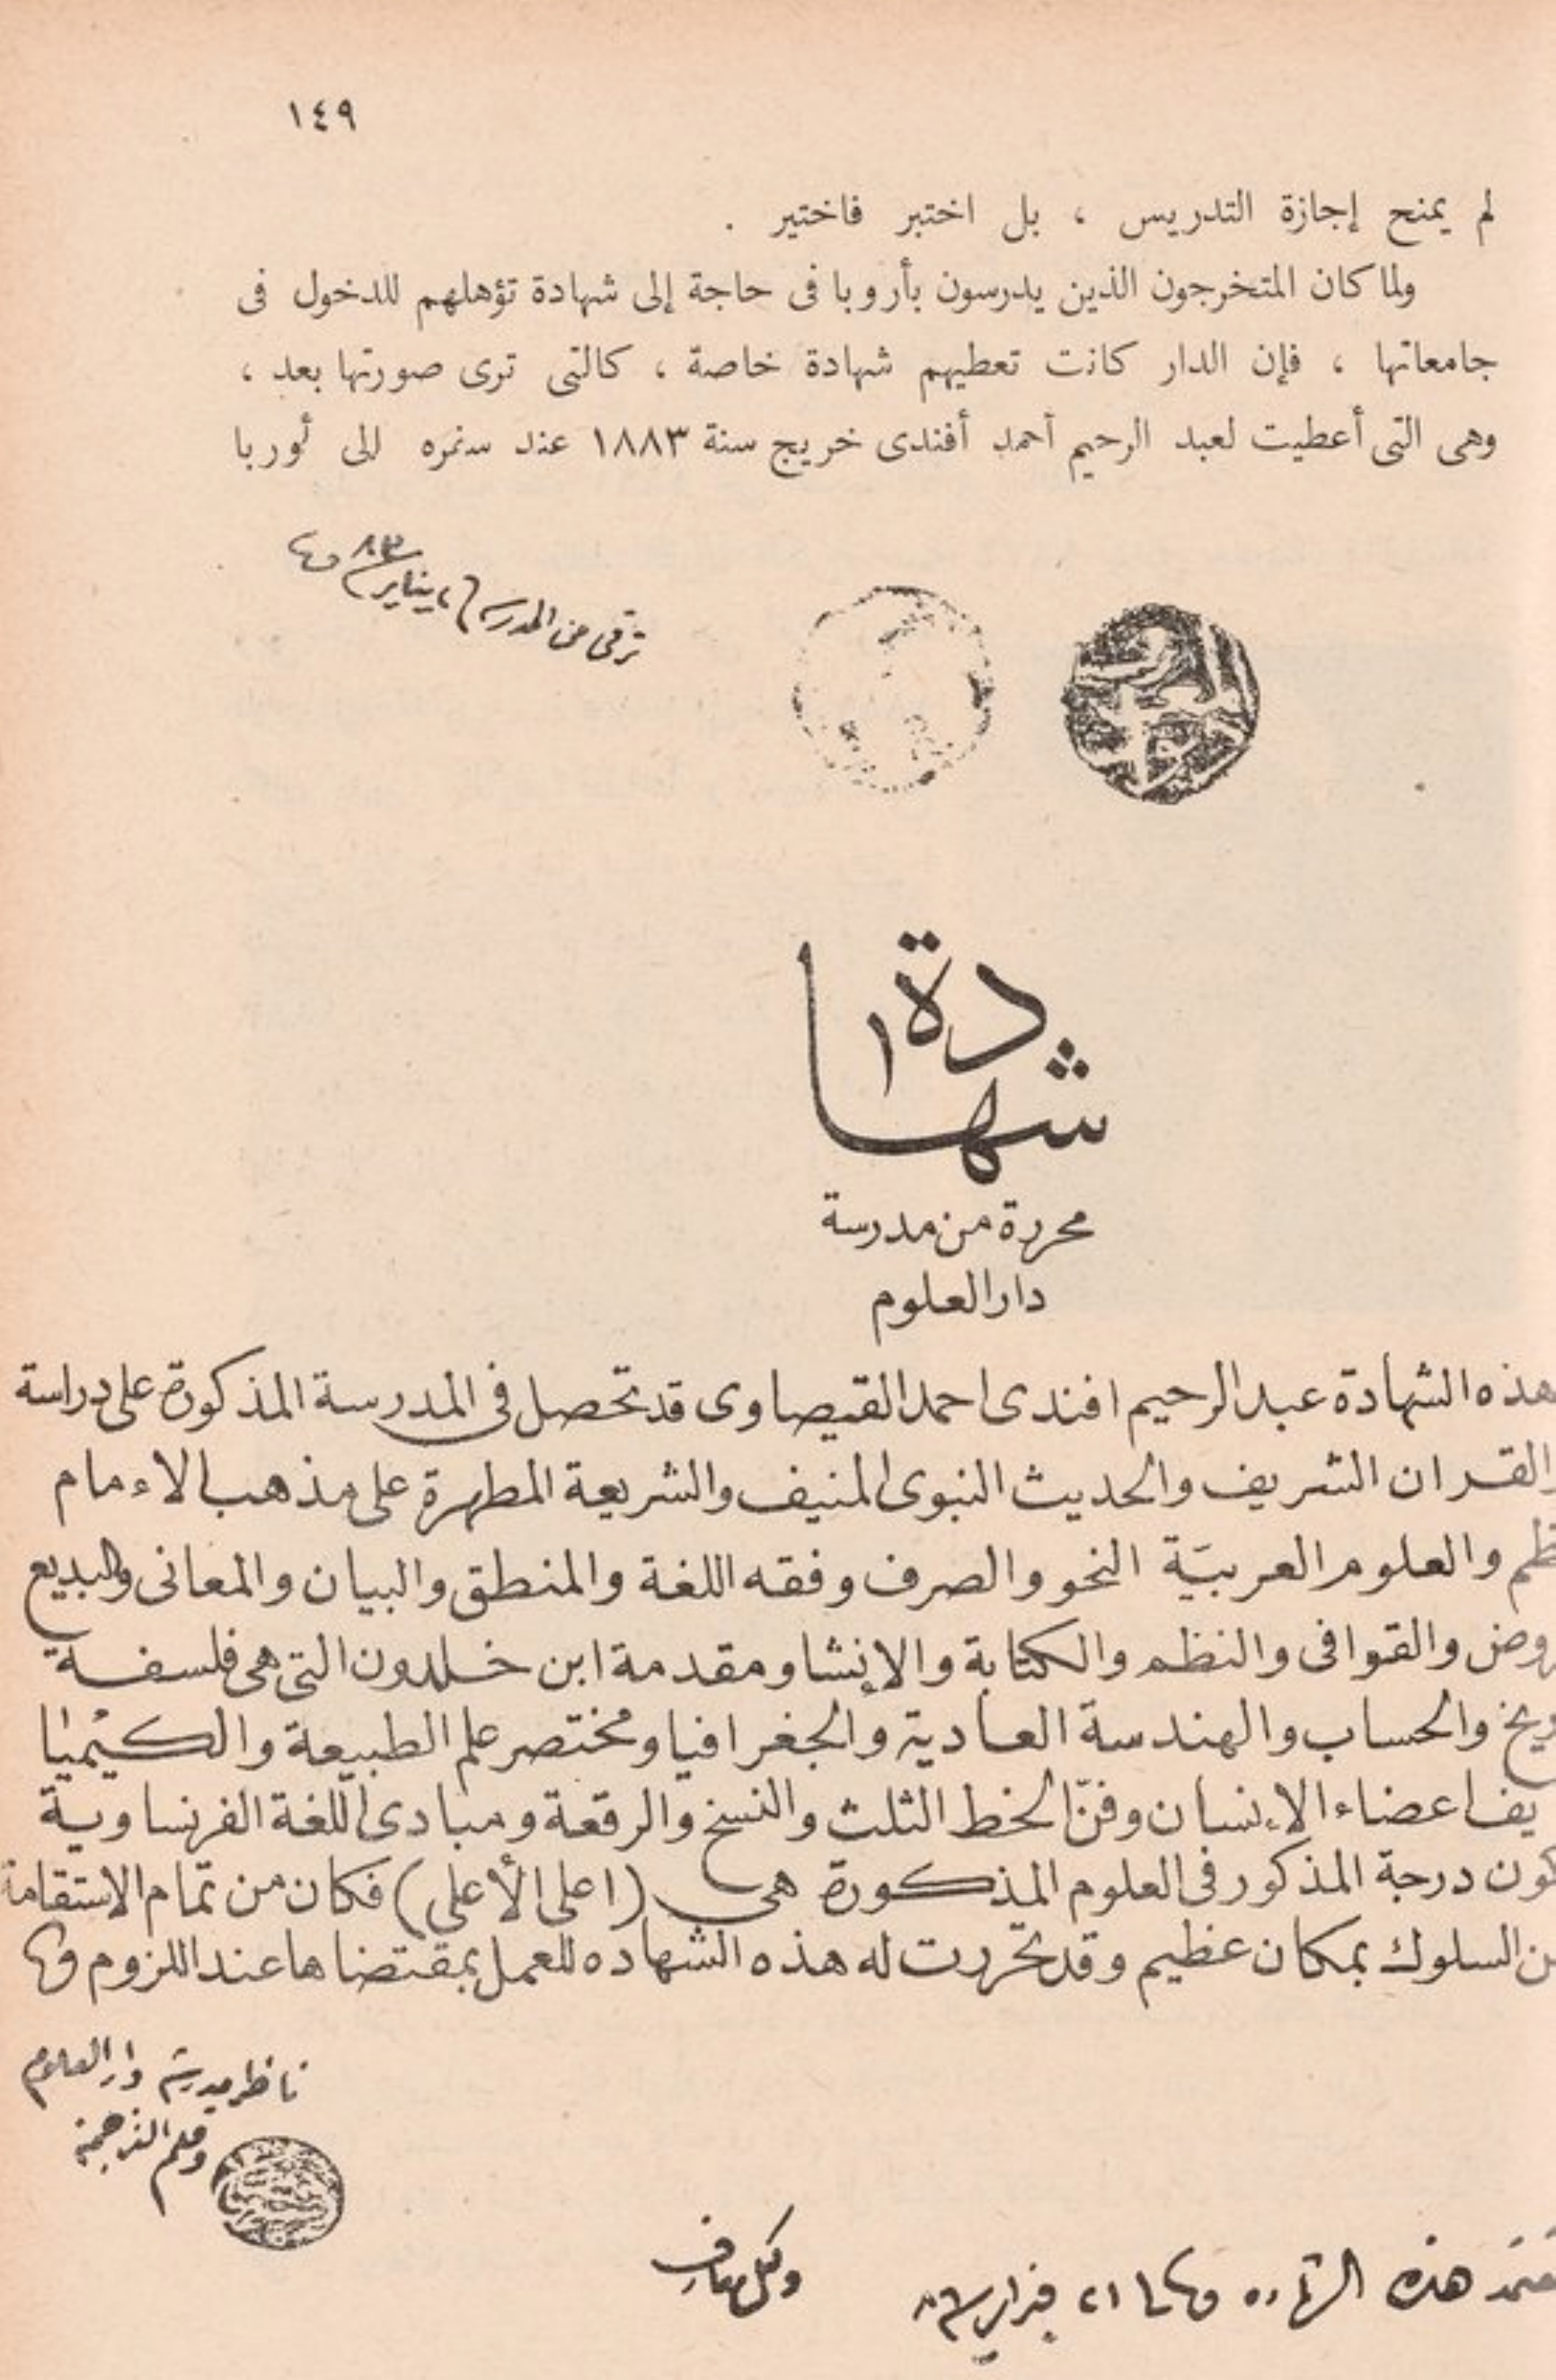 ١٤٩
لم يمنح إجازة التدريس ، بل اختبر فاختير .
ولما كان المتخرجون الذين يدرسون بأروبا فى حاجة إلى شهادة تؤهلهم للدخول فى
جامعاتها ، فإن الدار كانت تعطيهم شهادة خاصة ، كالتى ترى صورتها بعد ،
وهى التى أعطيت لعبد الرحيم أحمد أفندى خريج سنة ١٨٨٣ عند سفره إلى أوربا
ترقى من المدرسه يناير ٨٣
شهادة
محررة من مدرسة
دار العلوم
هذه الشهادة عبد الرحيم افندى احمد القيصاوى قد تحصل فى المدرسة المذكورة على دراسة
القران الشريف والحديث النبوى المنيف والشريعة المطهرة على مذهب الاءمام
ظم والعلوم العربيّة النحو والصرف وفقه اللغة والمنطق والبيان والمعانى والبديع
روض والقوافى والنظم والكتابة والإنشا ومقدمة ابن خلدون التى هى فلسفة
ريخ والحساب والهندسة العادية والجغرافيا ومختصر علم الطبيعة والكيميا
يف اعضاء الاءنسان وفنّ الخط الثلث والنسخ والرقعة ومبادى اللغة الفرنساوية
كون درجة المذكور فى العلوم المذكورة هى (اعلى الأعلى) فكان من تمام الاستقامة
ن السلوك بمكان عظيم وقد تحررت له هذه الشهاده للعمل بمقتضاها عند اللزوم
ناظر مدرسة دار العلوم
وقلم الترجمة
هذه الشهاده ٢١ فبراير
وكيل معارف